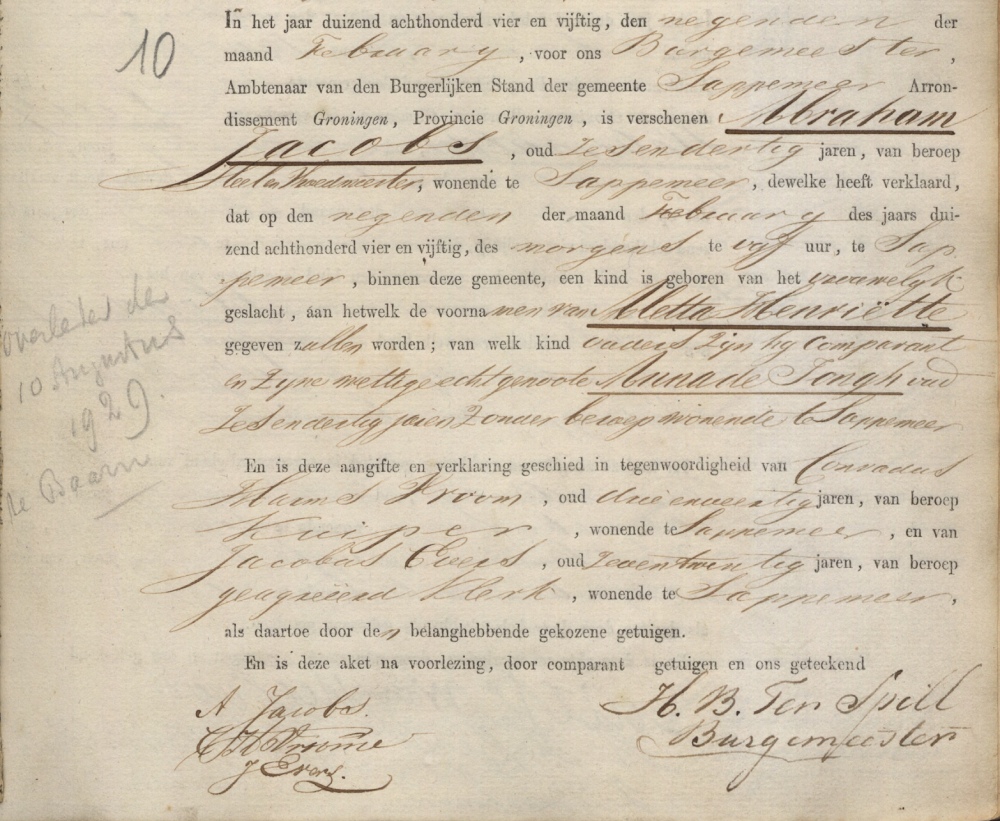 10
In het jaar duizend achthonderd vier en vijftig, den negenden der
maand Februarij, voor ons Burgemeester,
Ambtenaar van den Burgerlijken Stand der gemeente Sappemeer Arron-
dissement Groningen, Provincie Groningen, is verschenen Abraham
Jacobs, oud Zesendertig jaren, van beroep
Heel en Vroedmeester, wonende te Sappemeer, dewelke heeft verklaard,
dat op den negenden der maand Februarij des jaars dui-
zend achthonderd vier en vijftig, des morgens te vyf uur, te Sap
pemeer, binnen deze gemeente, een kind is geboren van het vrouwelyk
geslacht, aan hetwelk de voornamen van Aletta Henriëtte
gegeven zullen worden; van welk kind ouders Zijn hy Comparant
en Zyne wettige echtgenoote Anna de Jongh oud
Zesendertig jaren Zonder beroep wonende te Sappemeer
En is deze aangifte en verklaring geschied in tegenwoordigheid van Conradus
Harms Vroom, oud drieenveertig jaren, van beroep
Kuiper, wonende te Sappemeer, en van
Jacobus Evers, oud Zeventwintig jaren, van beroep
geagreëerd Klerk, wonende te Sappemeer,
als daartoe door den belanghebbende gekozene getuigen.
En is deze aket na voorlezing, door comparant getuigen en ons geteekend
A Jacobs.
C H Vroome
J Evers.
H. B. Ten Spill
Burgemeester
overleden den
10 Augustus
1929.
te Baarn